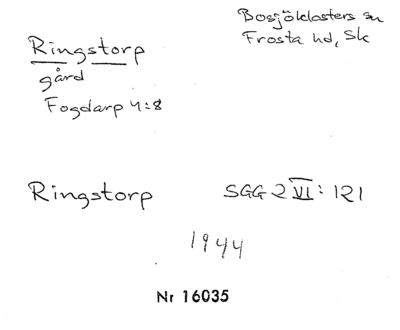 Ringstorp
gård
Fogdarp 4:8
Bosjöklosters sn
Frosta hd, Sk
Ringstorp SGG 2 VI: 121
1944
Nr 16035